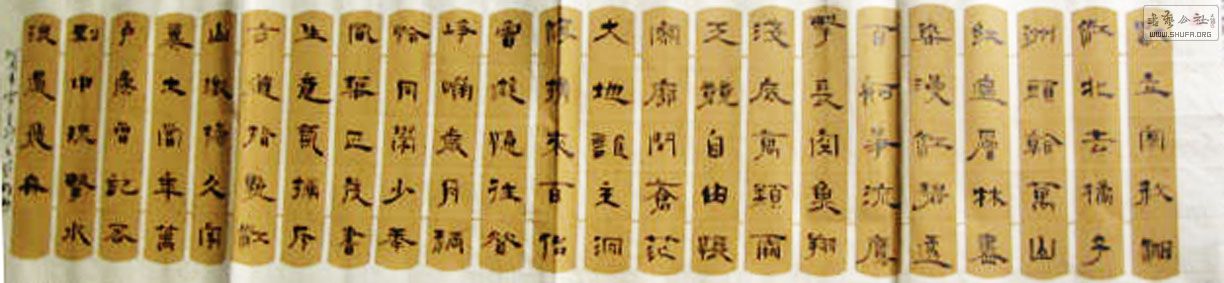 獨立寒秋湘
江北去橘子
洲頭看萬山
紅遍層林盡
染漫江碧透
百舸爭流鷹
擊長空魚翔
淺底萬類霜
天競自由悵
寥廓問蒼茫
大地誰主沉
浮攜來百侶
曾遊憶往昔
崢嶸歲月稠
恰同學少年
風華正茂書
生意氣揮斥
方遒指點江
山激揚文字
糞土當年萬
戶侯曾記否
到中流擊水
浪遏飛舟
WWW.SHUFA.ORG